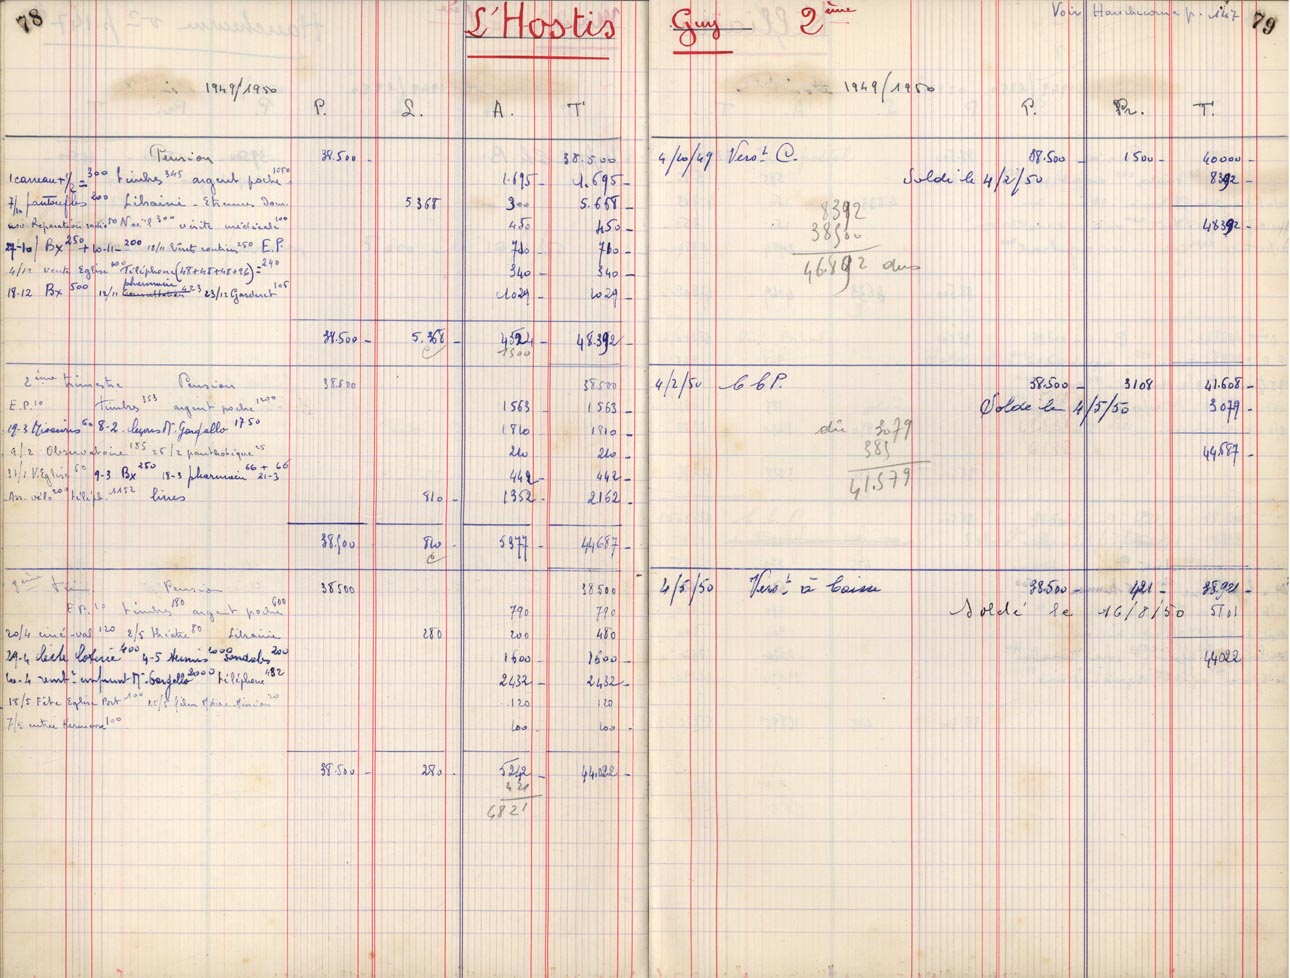 78
L'Hostis
1949/1950
P. L. A. T
Pension 38.500 - 38.500 -
1 carreau + 1/2 = 300 timbres 345 argent poche 1050 1.695 - 1.695 -
7/10 pantoufles 200 Librairie - Etrennes Dom. 5368 300 - 5.668 -
nov. Réparation radio 50 Noël 300 visite médicale 100 450 - 450 -
27-10/ Bx 250 + 10-11 = 200 E.P. 710 - 710 -
4/12 vente Eglise 100 Téléphone (48+48+48+96) = 240 340 - 340 -
18-12 Bx 500 12/11 pharmacie 423 23/12 105 1029 - 1029 -
38.500 - 5.368 - 4524 - 48.392 -
1500
2ème trimestre Pension 38500 38500 -
E.P. 10 timbres 353 argent poche 1200 1563 - 1563 -
19-3 60 8-2. leçons M. Gargello 1750 1810 - 1810 -
9/2 Observatoire 185 25/2 25 210 - 210 -
31/1 V. Eglise 60 9-3 Bx 250 18-3 pharmacie 66 + 66 21-3 442 - 442 -
Ass. vélo 200 téléph. 1152 livres 810 - 1352 - 2162 -
38.500 810 - 5377 - 44687 -
3ème trim. Pension 38500 38500 -
E.P. 10 timbres 180 argent poche 600 790 - 790 -
20/4 ciné-val 120 2/5 théâtre 80 Librairie 280 200 - 480 -
29-4 loterie 400 4-5 1000 Sandales 200 1600 - 1600 -
10-4 remt emprunt M. Gargello 2000 téléphone 432 2432 - 2432 -
18/5 Fête Eglise Port 100 25/5 film 20 120 120 -
7/5 entrée Kermesse 100 100 - 100 -
38.500 - 280 - 5242 - 44.022 -
421
4821
Guy 2ème
Voir Hauchecorne p. 147
79
1949/1950
P. Pr. T.
4/10/49 Verst C. 38.500 - 1500 - 40000 -
Soldé le 4/2/50 8392 -
8392
38500
46.892 dus
48392 -
4/2/50 CCP. 38.500 - 3108 41.608 -
Soldé le 4/5/50 3079 -
dû 3079
385
41.579
44687 -
4/5/50 Verst à Caisse 38.500 - 421 - 38921 -
Soldé le 16/8/50 5101
44022